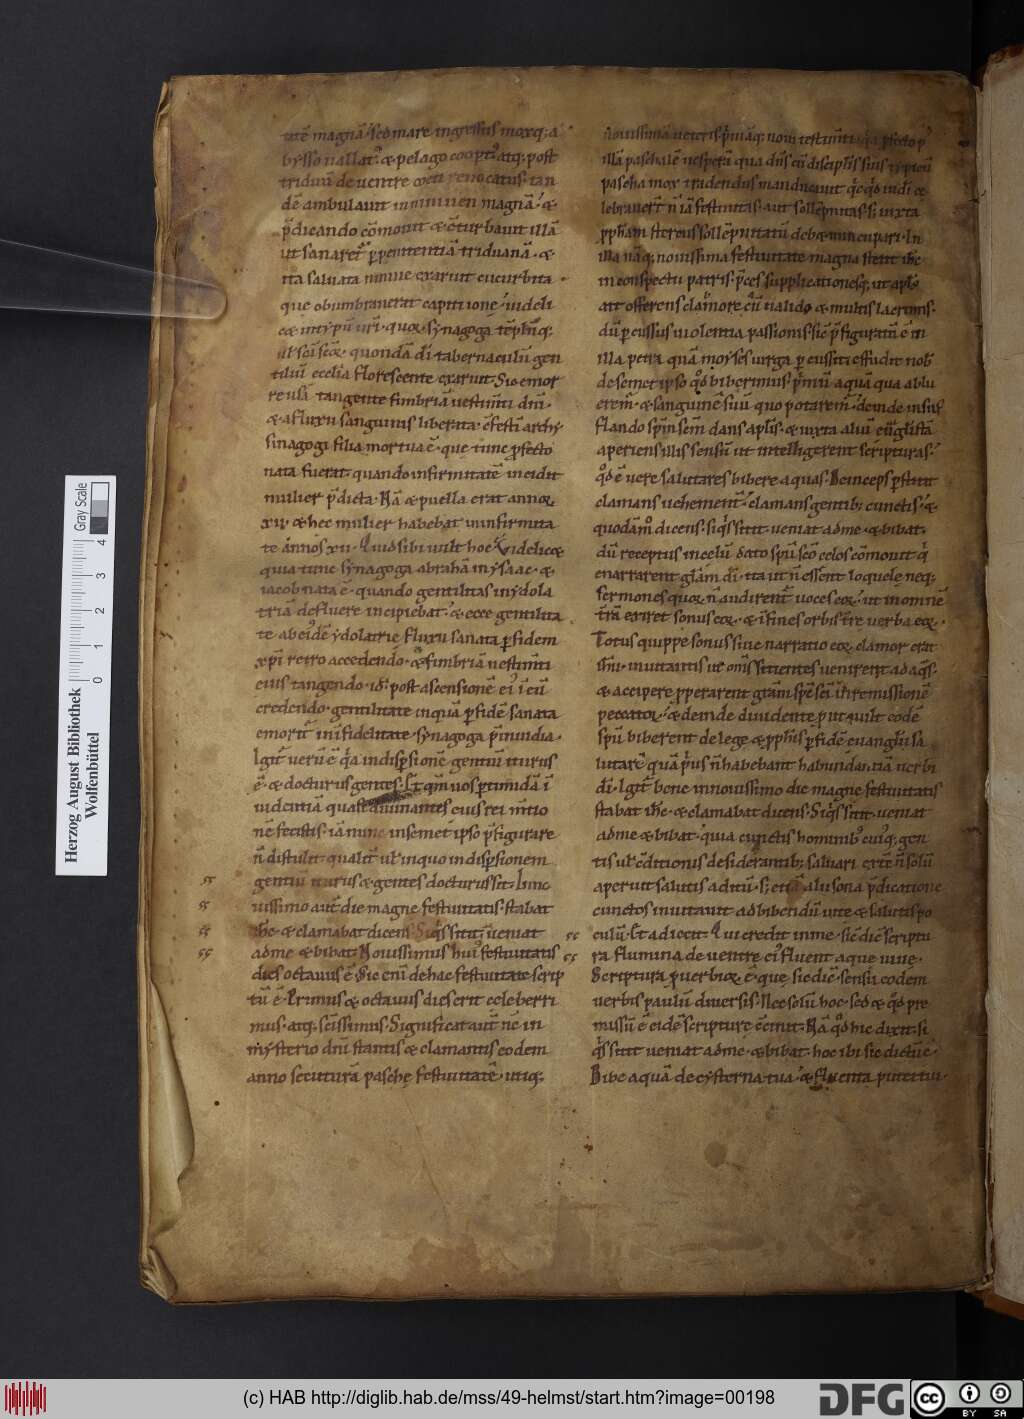 tatē magnā. sed mare ingressus moxq; a
bysso uallatꝰ. & pelago cooptꝰ atq; post
triduū de uentre coeti reuocatus. tan
dē ambulauit in niniuen magnā. &
p̄dicando cōmouit & ōturbauit illā
ut sanaret͛ ꝑ penitentiā triduanā. &
ita saluata niniue exaruit cucurbita
que obumbrauerat capiti ione. uideli
synagoga
quondā dī tabernaculū gen
tiliū ecclia florescente exaruit. Sic emor
tangente fimbriā uestim̄ti dnī.
& a fluxu sanguinis liberata. ē festī archy
sinagogi filia mortua ē. que tunc ꝑfecto
nata fuerat. quando infirmitatē incidit
mulier p̄dicta. Nā & puella erat annoꝝ
xii. & hec mulier habebat in infirmita
te annos xii. Quid sibi uult hoc. Videlic&
quia tunc synagoga abrahā in ysaac. &
iacob nata ē. quando gentilitas in ydola
triā defluere incipiebat. & ecce gentilita
te ab eidē ydolatrie fluxu sanata ꝑ fidem
xp̄i retro accedendo. & fimbriā uestim̄ti
eius tangendo. id. post ascensionē eiꝰ ī eū
credendo. gentilitate inquā ꝑ fidē sanata
emorit͛ in ifidelitate synagoga p̄ inuidia.
Igit͛ uerū ē qꝺ in dispsionē gentiū iturus
ē. & docturus gentes. Et qm̄ uos ꝑ timidā ī
uidentiā quasi diuinantes eius rei m̄tio
nē fecistis. iā nunc insemet ipso p̄figurare
n̄ distulit qualit͛ ut in quo in dispersionem
gentiū iturus & gentes docturus sit. In no
uissimo aut̄ die magne festiuitatis. stabat
ihc̄ & clamabat dicens. Siq̄s sitit. ueniat
ad me & bibat. Nouissimus huiꝰ festiuitatis
dies octauus ē. Sic enī de hac festiuitate scrip
tū ē. Primus & octauus dies erit celeberri
mus. atq; sc̄issimus. Significat aut̄ nc̄ in
mysterio dnī stantis & clamantis eodem
anno secuturā pasche festiuitatē. utiq;
nouissimā ueteris. p̄māq; noui testam̄ti.
illā paschalē uesperā qua dn̄s cū discipl̄is suis typicū
pascha mox tradendus manducauit
lebrauer̄t n̄ iā festiuitas. aut sollēpnitas s; iuxta
pph̄am stercus sollēpnitatū deb& nuncupari. In
illa nāq; nouissima festiuitate magna stetit ihc̄
in conspectu patris. p̄ces supplicationesq; ut apl̄s
ait offerens clamore cū ualido & multis lacrimis.
dū ꝑcussus uiolentia passionis. sic p̄figuratū ē in
illa petra quā moyses uirga ꝑcussit & effudit nob̄
de semet ipso qꝺ biberimus p̄mū aquā qua ablu
erem̄. & sanguinē suū quo potarem̄. deinde insuf
flando spm̄ scm̄ dans apl̄is. & iuxta aliū euglistā
aperiens illis sensū ut intelligerent scripturas.
qꝺ ē uere salutares bibere aquas. Deinceps ꝑstitit
clamans uehement͛. clamans gentib; cunctis. &
quodāmō dicens. siq̄s sitit. ueniat ad me. & bibat.
dū receptus in celū dato spū scō celos cōmouit q̄
enarrarent glām dī. ita ut n̄ essent loquele neq;
sermones quoꝝ n̄ audirent͛ uoces eoꝝ. ut in omnē
t̄rā exiret sonus eoꝝ. & ī fines orbis t̄re uerba eoꝝ.
Totus quippe sonus siue narratio eoꝝ clamor erat
ihū inuitantis ut om̄s sitientes uenirent ad aq̄s.
& accipere ꝓperarent gtām sp̄s sc̄i in remissionē
peccatoꝝ. & deinde diuidente ꝓut uult eodē
spū biberent de lege & pph̄is ꝑ fidē euangl̄ii sa
lutarē quā p̄us n̄ habebant habundantiā uerbi
dī. Igit͛ bene in nouissimo die magne festiuitatis
stabat ihc̄ & clamabat dicens. Siq̄s sitit ueniat
ad me & bibat. quia cunctis hominibꝰ cuiq; gen
tis ut cōditionis desiderantib; saluari
aperuit salutis aditū. s; & alta sona p̄dicatione
cunctos inuitauit ad bibendū uite & salutis po
culū. Et adiecit. Qui credit in me. sic dic̄ scriptu
ra flumina de uentre eiꝰ fluent aque uiue.
Scriptura ꝓuerbioꝝ ē. que sic dic̄. sensu eodem
uerbis paulū diuersis. Nec solū hoc. sed & qꝺ pre
missū ē eidē scripture ōcinit. Nā qꝺ hic dixit. si
q̄s sitit ueniat ad me. & bibat. hoc ibi sic dictū ē.
Bibe aquā de cysterna tua. & fluenta putei tui.
Herzog August Bibliothek
Wolfenbüttel
Gray Scale
0 1 2 3 4
(c) HAB http://diglib.hab.de/mss/49-helmst/start.htm?image=00198
DFG
cc BY SA